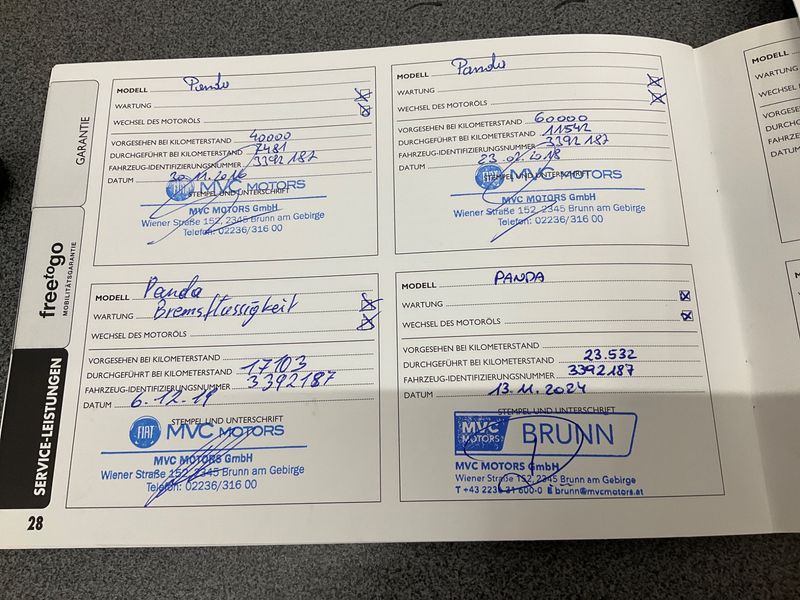 GARANTIE
freetogo
MOBILITÄTSGARANTIE
SERVICE-LEISTUNGEN
28
MODELL Panda
WARTUNG
WECHSEL DES MOTORÖLS
VORGESEHEN BEI KILOMETERSTAND 40000
DURCHGEFÜHRT BEI KILOMETERSTAND 7481
FAHRZEUG-IDENTIFIZIERUNGSNUMMER 3392187
DATUM 30.11.2016
STEMPEL UND UNTERSCHRIFT
FIAT MVC MOTORS
MVC MOTORS GmbH
Wiener Straße 152, 2345 Brunn am Gebirge
Telefon: 02236/316 00
MODELL Panda
WARTUNG
WECHSEL DES MOTORÖLS
VORGESEHEN BEI KILOMETERSTAND 60000
DURCHGEFÜHRT BEI KILOMETERSTAND 11542
FAHRZEUG-IDENTIFIZIERUNGSNUMMER 3392187
DATUM 23.02.2018
STEMPEL UND UNTERSCHRIFT
FIAT MVC MOTORS
MVC MOTORS GmbH
Wiener Straße 152, 2345 Brunn am Gebirge
Telefon: 02236/316 00
MODELL Panda
WARTUNG Bremsflüssigkeit
WECHSEL DES MOTORÖLS
VORGESEHEN BEI KILOMETERSTAND
DURCHGEFÜHRT BEI KILOMETERSTAND 17103
FAHRZEUG-IDENTIFIZIERUNGSNUMMER 3392187
DATUM 6.12.19
STEMPEL UND UNTERSCHRIFT
FIAT MVC MOTORS
MVC MOTORS GmbH
Wiener Straße 152, 2345 Brunn am Gebirge
Telefon: 02236/316 00
MODELL PANDA
WARTUNG
WECHSEL DES MOTORÖLS
VORGESEHEN BEI KILOMETERSTAND
DURCHGEFÜHRT BEI KILOMETERSTAND 23.532
FAHRZEUG-IDENTIFIZIERUNGSNUMMER 3392187
DATUM 13.11.2024
STEMPEL UND UNTERSCHRIFT
MVC MOTORS BRUNN
MVC MOTORS GmbH
Wiener Straße 152, 2345 Brunn am Gebirge
T +43 2236 31 600-0 E brunn@mvcmotors.at
MODELL
WARTUNG
WECHSEL